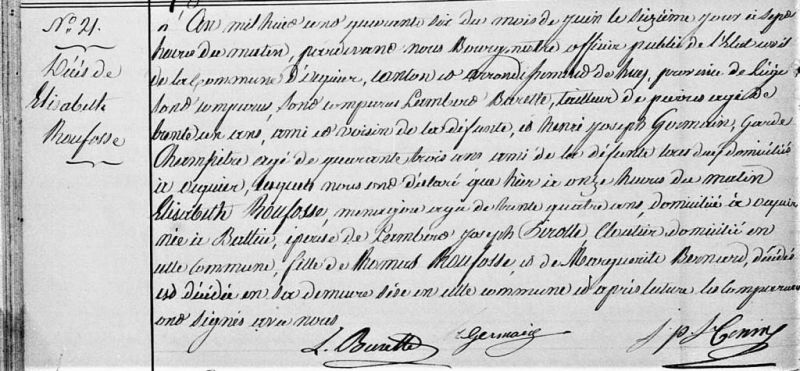 N.° 21.
Décès de
Elisabeth
Roufosse
L'An mil huit cent quarante six du mois de juin le sixième jour à sept
heures du matin, pardevant nous Bourgmestre officier public de l'Etat civil
de la commune d'                canton et arrondissement de huy, province de Liège
sont comparus, sont comparus Lambert Burette, tailleur de pierres agé de
trente un ans, ami et voisin de la défunte, et henri Joseph Germain, Garde
Champêtre agé de quarante trois ans ami de la défunte tous deux domiciliés
à                lesquels nous ont déclaré que hier à onze heures du matin
Elisabeth Roufosse, menagère agée de trente quatre ans, domiciliée à
née à                épouse de Lambert Joseph                Cloutier domicilié en
cette commune, fille de Thomas Roufosse, et de Marguerite Bernard, décédés
est décédée en sa demeure sise en cette commune et après lecture les comparants
ont signés avec nous
L. Burette    Germain